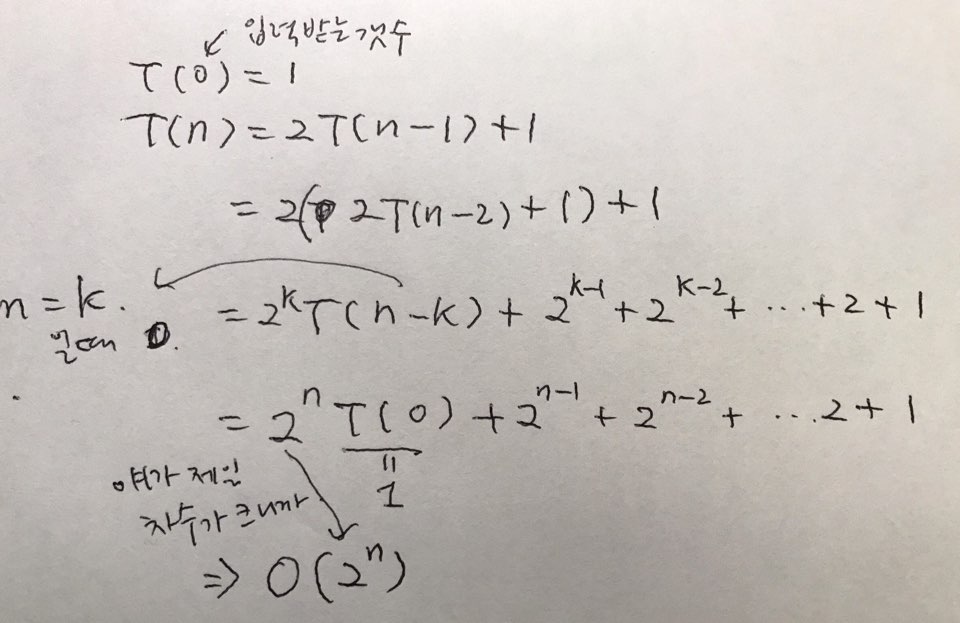 입력받는 갯수
T(0) = 1
T(n) = 2T(n-1) + 1
= 2(2T(n-2) + 1) + 1
n = k. = 2^k T(n-k) + 2^{k-1} + 2^{k-2} + ... + 2 + 1
일때 0.
= 2^n T(0) + 2^{n-1} + 2^{n-2} + ... 2 + 1
여가 제일 = 1
차수가 크니까
⇒ O(2^n)